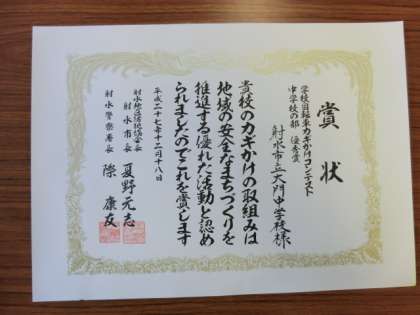 賞状
学校自転車カギかけコンテスト
中学校の部 優秀賞
射水市立大門中学校様
貴校のカギかけの取組みは
地域の安全なまちづくりを
推進する優れた活動と認め
られましたのでこれを賞します
平成二十七年十二月十八日
射水市長 夏野元志
射水警察署長 際康友